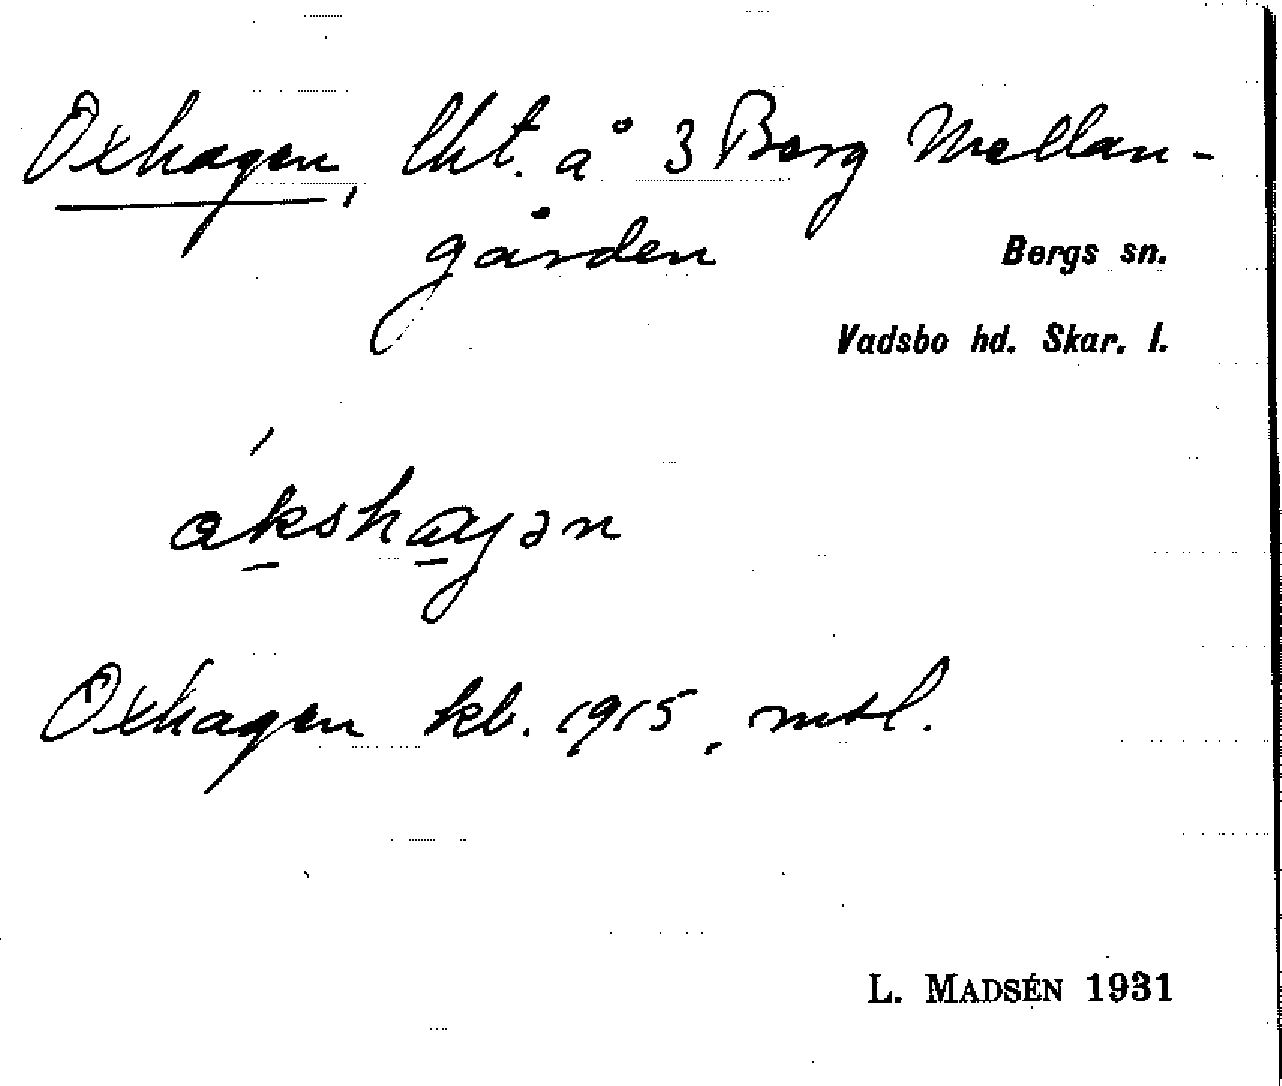 Oxhagen, lht. å 3 Berg Mellan-
gården
Bergs sn.
Vadsbo hd. Skar. l.
ákshagən
Oxhagen kb. 1915, mtl.
L. MADSÉN 1931